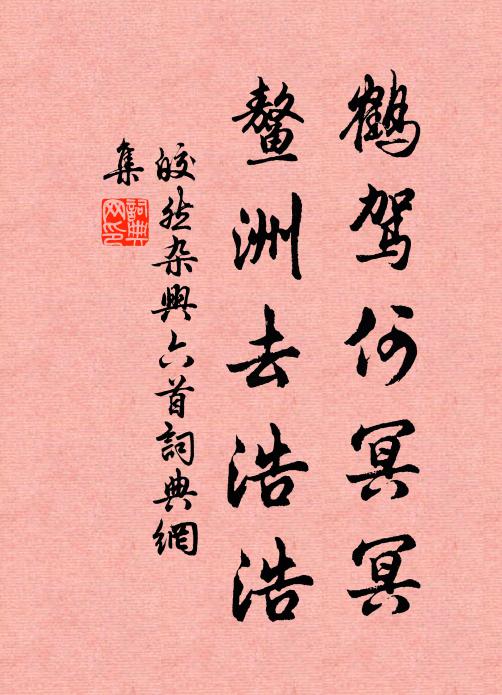 鶴驾何冥冥
鰲洲去浩浩
皎然杂興六首詞典網
集
詞典网印